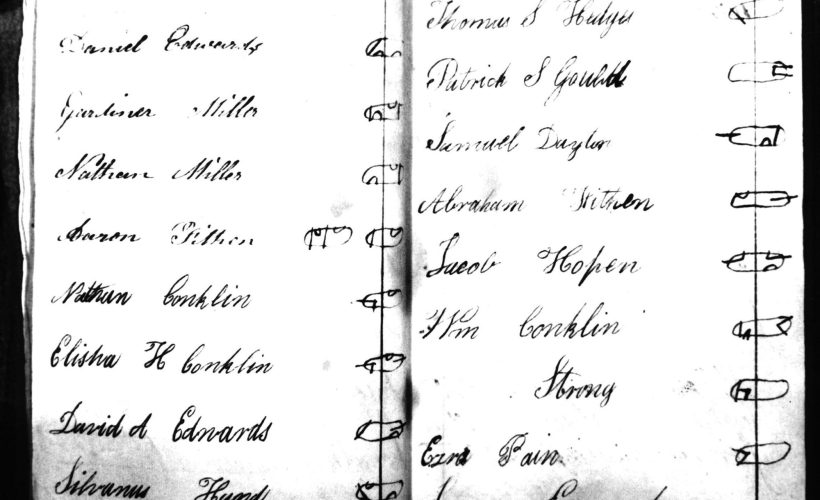 Daniel Edwards
Gardiner Miller
Nathan Miller
Aaron Fithen
Nathan Conklin
Elisha H Conklin
David A Edwards
Silvanus Hand
Thomas S Hedges
Patrick S Gould
Samuel Dayton
Abraham
Jacob Hopen
Wm Conklin
Strong
Ezra Pain